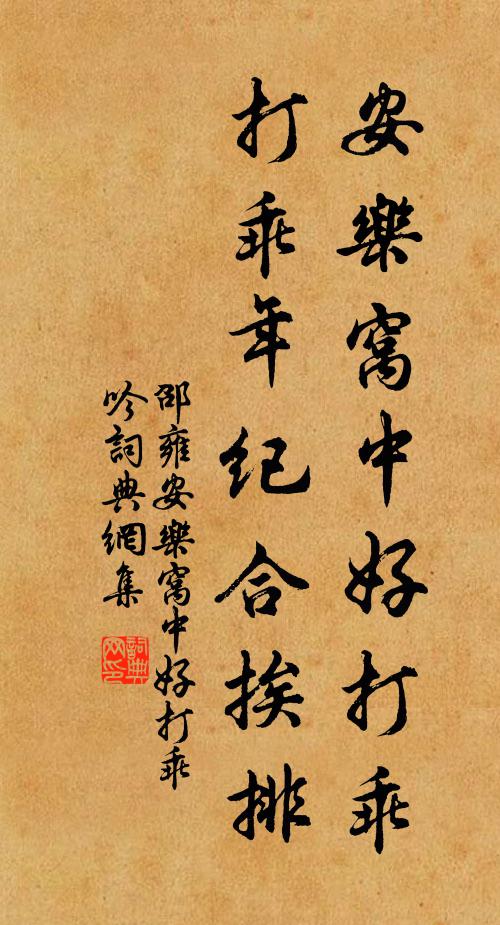 安樂窩中好打乖
打乖年紀合挨排
邵雍安樂窩中好打乖
吟詞典網集
詞典網印